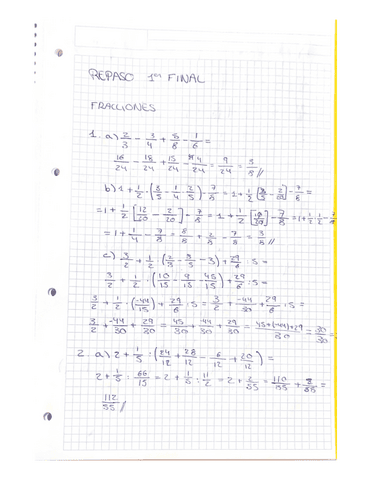 REPASO 1er FINAL
FRACCIONES
1. a) 2/3 - 3/4 + 5/8 - 1/6 =
16/24 - 18/24 + 15/24 - 4/24 = 9/24 = 3/8 //
b) 1 + 1/2 · (3/5 - 1/4 · 2/5) - 7/8 = 1 + 1/2 [3/5 - 2/20] - 7/8 =
= 1 + 1/2 [12/20 - 2/20] - 7/8 = 1 + 1/2 [10/20] - 7/8 = 1 + 1/2 · 1/2 - 7/8
= 1 + 1/4 - 7/8 = 8/8 + 2/8 - 7/8 = 3/8 //
c) 3/2 + 1/2 · (2/3 - 3/5 - 3) + 29/6 : 5 =
3/2 + 1/2 · (10/15 - 9/15 - 45/15) + 29/6 : 5 =
3/2 + 1/2 · (-44/15) + 29/6 : 5 = 3/2 + -44/30 + 29/6 : 5 =
3/2 + -44/30 + 29/30 = 45/30 + -44/30 + 29/30 = 45+(-44)+29/30 = 30/30 =
2. a) 2 + 1/5 : (24/12 + 28/12 - 6/12 + 20/12) =
2 + 1/5 : 66/12 = 2 + 1/5 : 11/2 = 2 + 2/55 = 110/55 + 2/55 =
112/55 //